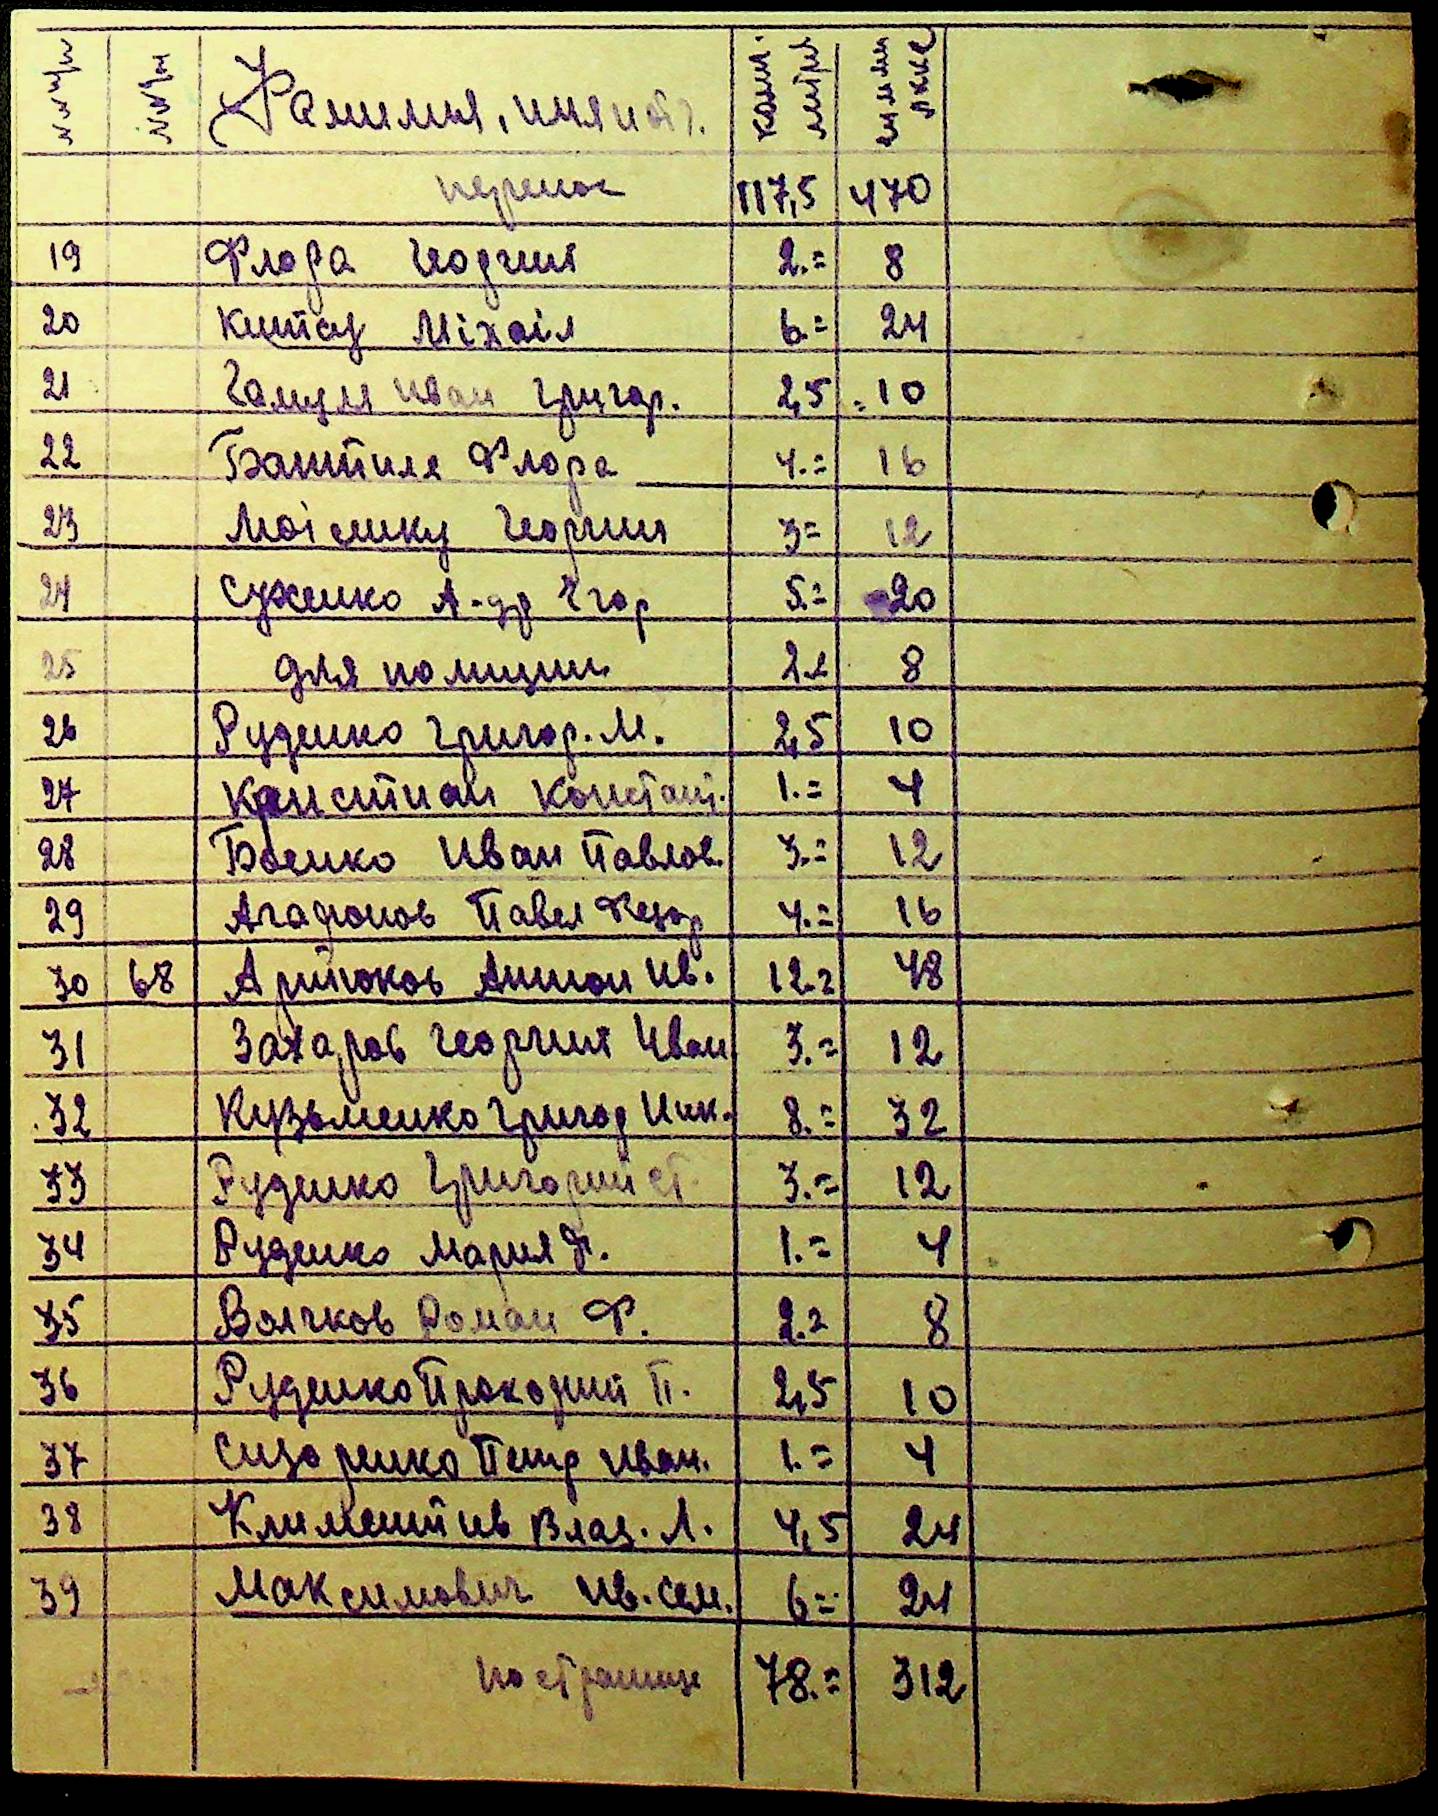 Фамилия, имя и отч. колич. литр сумма лкке
перенос 117,5 470
19 Флора Георгий 2.= 8
20 Китау Міхаіл 6.= 24
21 Гамуля Иван Григор. 2,5 10
22 Баштиля Флора 4.= 16
23 Моісеику Георгий 3= 12
24 Суженко А-др Егор 5.= 20
25 для полиции 2.= 8
26 Руденко Григор. М. 2,5 10
27 Констиан Констант. 1.= 4
28 Боенко Иван Павлов. 3.= 12
29 Агафонов Павел Федор 4.= 16
30 68 Артюков Антон Ив. 12.= 48
31 Захаров Георгий Иван 3.= 12
32 Кузьменко Григор Ник. 8.= 32
33 Руденко Григорий Ст. 3.= 12
34 Руденко Мария Ф. 1.= 4
35 Волчков Роман Ф. 2.= 8
36 Руденко Прокофий П. 2,5 10
37 Сизоренко Петр Иван. 1.= 4
38 Климентив Влад. Л. 4,5 24
39 Максимович Ив. Сем. 6= 24
по странице 78.= 312